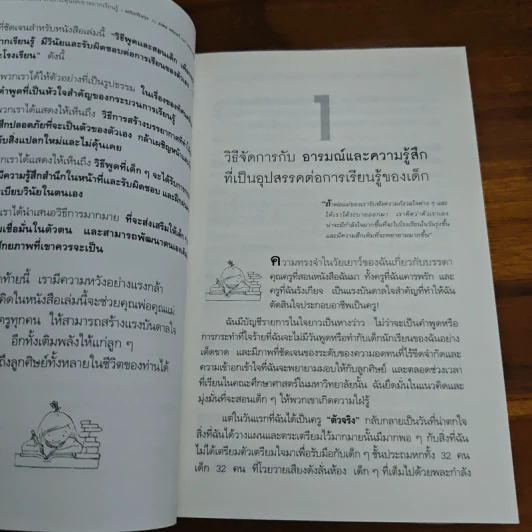 ที่ชัดเจนสำหรับหนังสือเล่มนี้ "วิธีพูดและสอนเด็ก
ากเรียนรู้ มีวินัยและรับผิดชอบต่อการเรียนของตัวเอง
ะโรงเรียน" ดังนี้
พวกเราได้ให้ตัวอย่างที่เป็นรูปธรรม
คำพูดที่เป็นหัวใจสำคัญของกระบวนการเรียนรู้
เราได้แสดงให้เห็นถึง วิธีการสร้างบรรยากาศ
สึกปลอดภัยที่จะเป็นตัวของตัวเอง กล้าเผชิญหน้า
กับสิ่งแปลกใหม่และไม่คุ้นเคย
กเราได้แสดงให้เห็นถึง วิธีพูดที่เด็ก ๆ จะได้รับการ
มีความรู้สึกสำนึกในหน้าที่และรับผิดชอบ และฝึกฝน
ะเบียบวินัยในตนเอง
เราได้นำเสนอวิธีการมากมาย ที่จะส่งเสริมให้เด็ก ๆ
เชื่อมั่นในตัวตน และสามารถพัฒนาตนเอง
ศักยภาพที่เขาควรจะเป็น
ดท้ายนี้ เรามีความหวังอย่างแรงกล้า
คิดในหนังสือเล่มนี้จะช่วยคุณพ่อคุณแม่
ครูทุกคน ให้สามารถสร้างแรงบันดาลใจ
อีกทั้งเติมพลังให้แก่ลูก ๆ
ถึงลูกศิษย์ทั้งหลายในชีวิตของท่านได้
1
วิธีจัดการกับ อารมณ์และความรู้สึก
ที่เป็นอุปสรรคต่อการเรียนรู้ของเด็ก
"ถ้าพ่อแม่ของเรารับฟังความกังวลใจต่าง ๆ และ
ให้เราได้ระบายออกมา เราคิดว่าตัวเราเอง
น่าจะมีกำลังใจมากขึ้นที่จะไปโรงเรียนในวันรุ่งขึ้น
และมีความฮึกเหิมที่จะพยายามมากขึ้น"
ความทรงจำในวัยเยาว์ของฉันเกี่ยวกับบรรดา
คุณครูที่สอนหนังสือฉันมา ทั้งครูที่ฉันเคารพรัก และ
ครูที่ฉันรังเกียจ เป็นแรงบันดาลใจสำคัญที่ทำให้ฉัน
ตัดสินใจประกอบอาชีพเป็นครู!
ฉันมีบัญชีรายการในใจยาวเป็นหางว่าว ไม่ว่าจะเป็นคำพูดหรือ
การกระทำที่ใจร้ายที่ฉันจะไม่มีวันพูดหรือทำกับเด็กนักเรียนของฉันอย่าง
เด็ดขาด และมีภาพที่ชัดเจนของระดับของความอดทนที่ไร้ขีดจำกัดและ
ความเข้าอกเข้าใจที่ฉันจะพยายามมอบให้กับลูกศิษย์ และตลอดช่วงเวลา
ที่เรียนในคณะศึกษาศาสตร์ในมหาวิทยาลัยนั้น ฉันยึดมั่นในแนวคิดและ
มุ่งมั่นที่จะสอนเด็ก ๆ ให้พวกเขาเกิดความใฝ่รู้
แต่ในวันแรกที่ฉันได้เป็นครู "ตัวจริง" กลับกลายเป็นวันที่น่าตกใจ
สิ่งที่ฉันได้วางแผนและตระเตรียมไว้มากมายนั้นมีมากพอ ๆ กับสิ่งที่ฉัน
ไม่ได้เตรียมตัวเตรียมใจมาเพื่อรับมือกับเด็ก ๆ ชั้นประถมหกทั้ง 32 คน
เด็ก 32 คน ที่โวยวายเสียงดังลั่นห้อง เด็ก ๆ ที่เต็มไปด้วยพละกำลัง